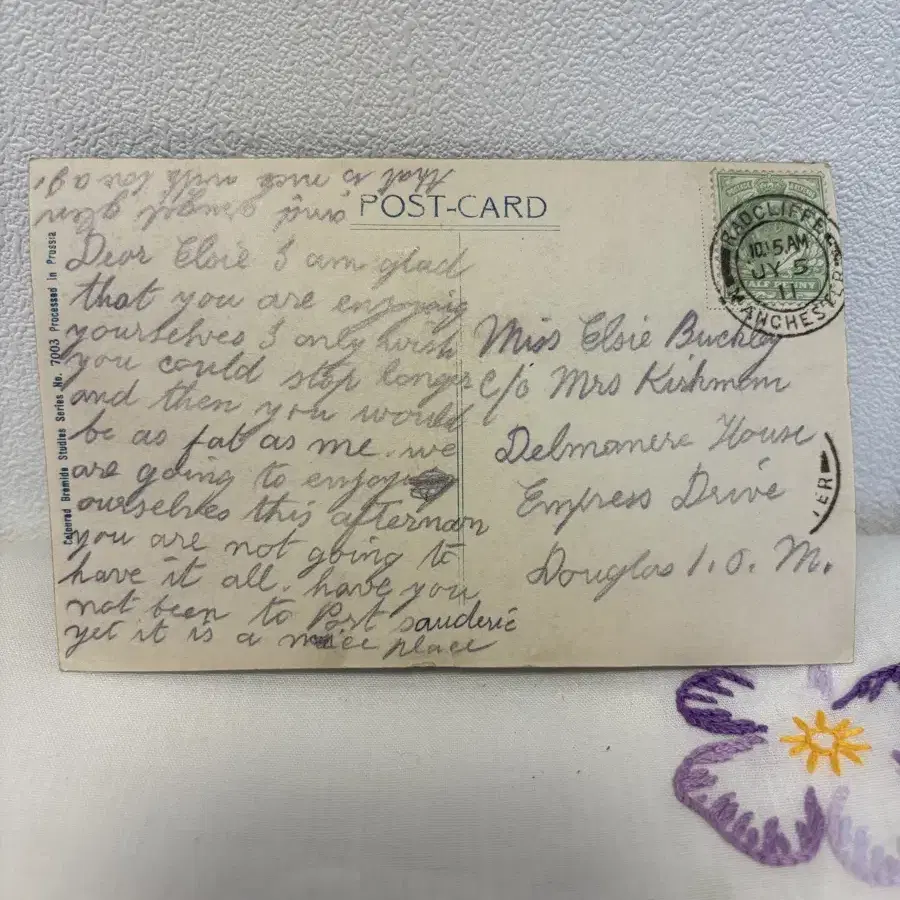 POST-CARD
Dear Elsie I am glad
that you are enjoyig
yourselves I only wish
you could stop longer
and then you would
be as fat as me. we
are going to enjoy
ourselves this afternoon
you are not going to
have it all. have you
not been to Port sauderic
yet it is a nice place
and glen
that is nice
Miss Elsie Buckley
c/o Mrs Kishmom
Delmamere House
Empress Drive
Douglas I. O. M.
RADCLIFFE
10.15 AM
JY 5
11
MANCHESTER
HALFPENNY
TER
Coloured Bromide Studies Series No. 7003 Processed in Prussia